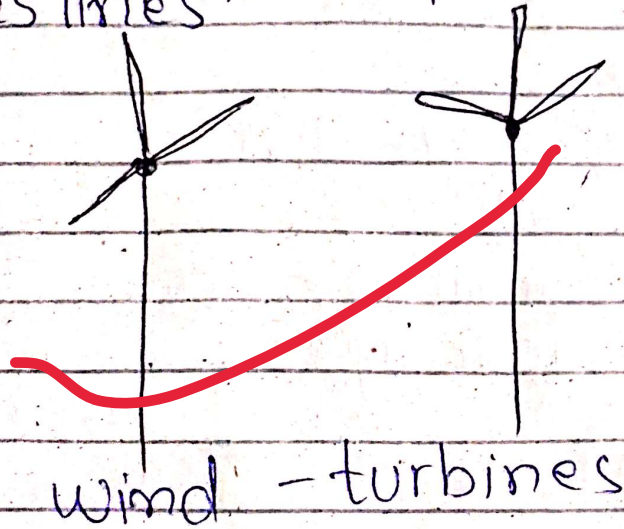 wind - turbines